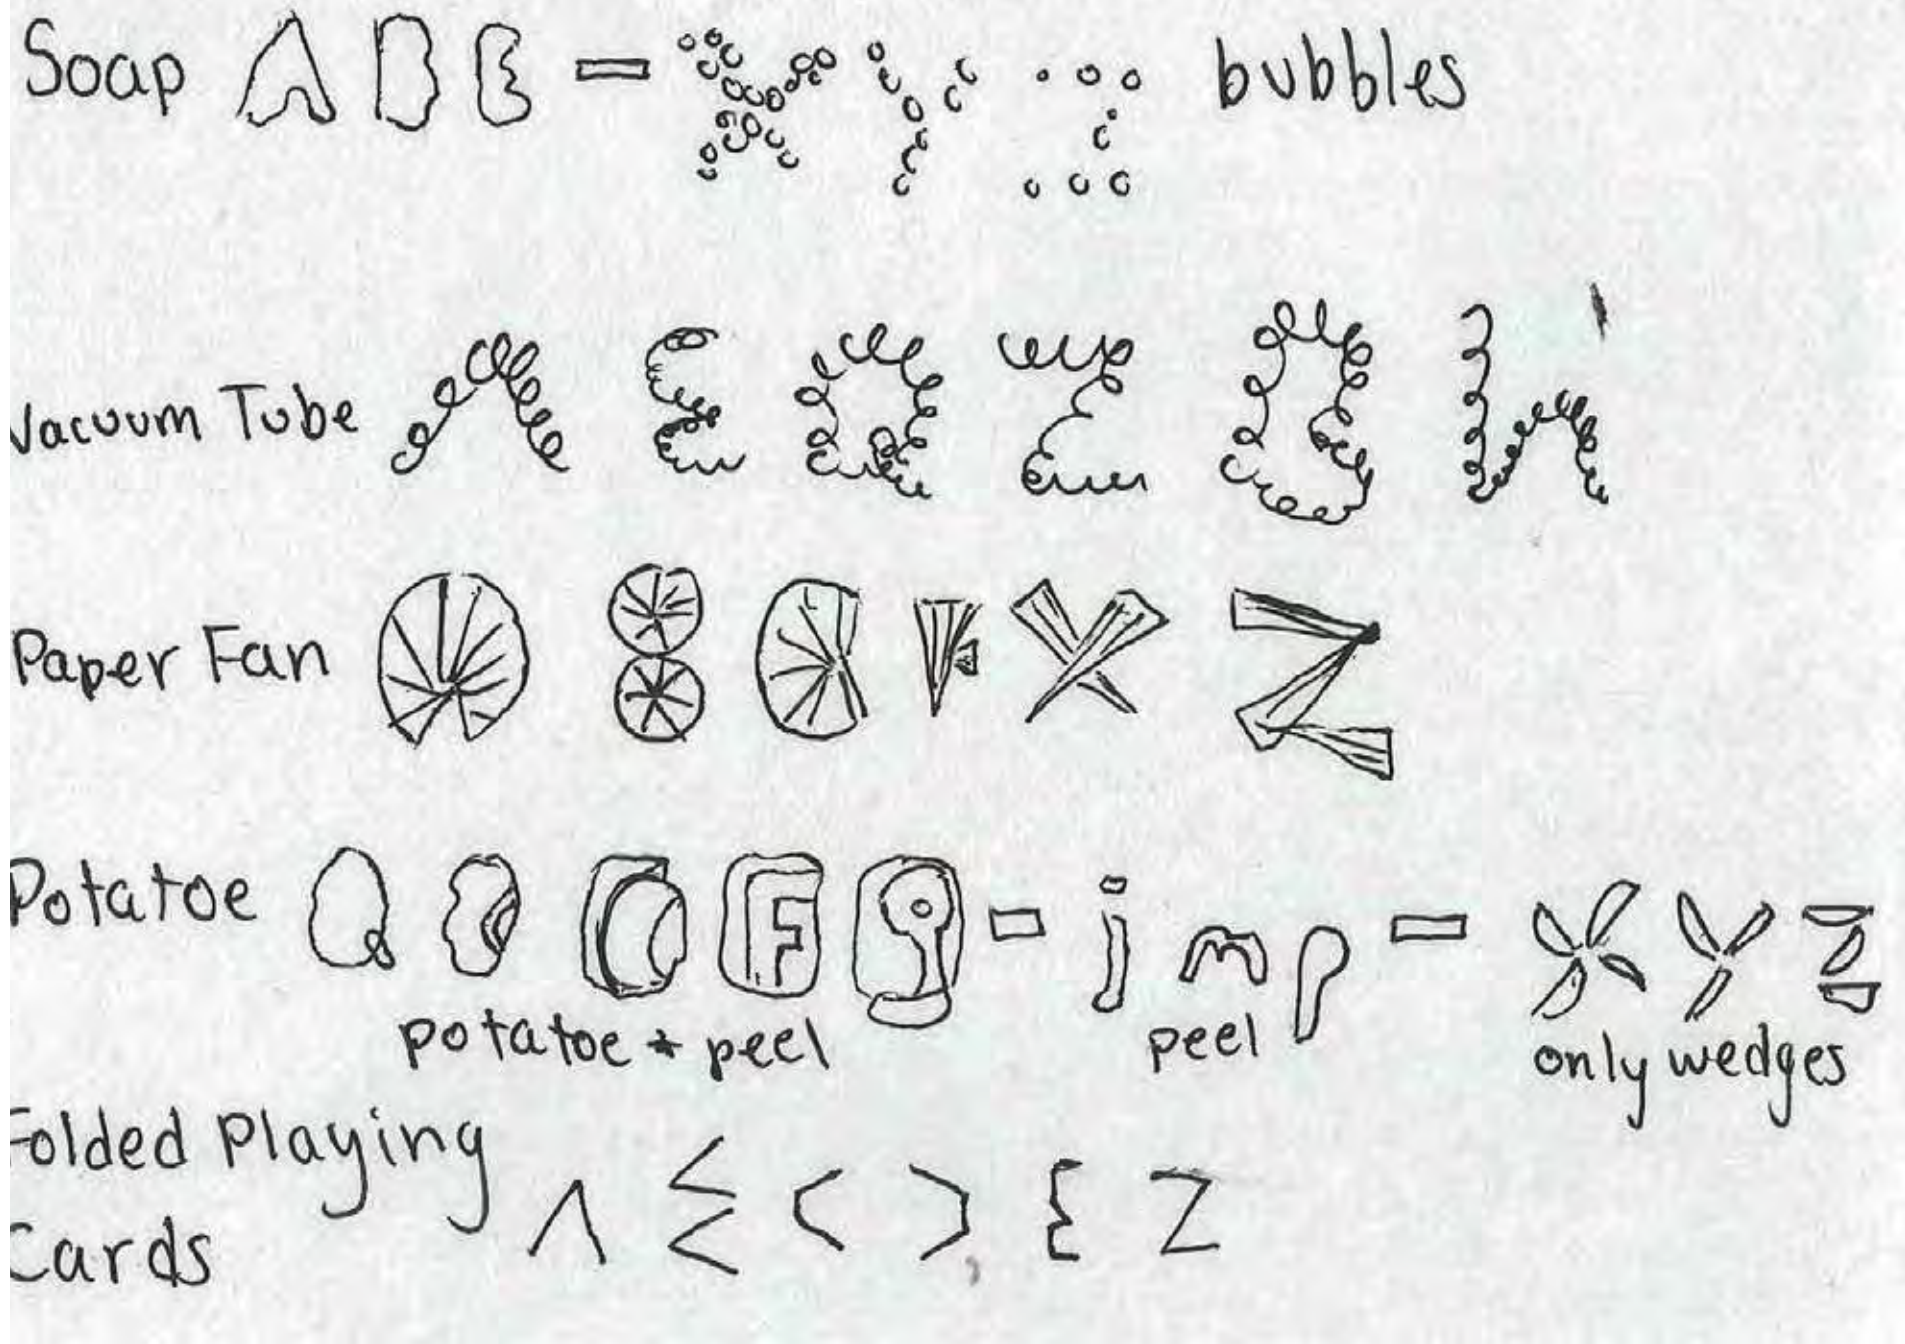 Soap A B E - X Y Z bubbles
Vacuum Tube A E Q Z B h
Paper Fan
X Z
Potatoe Q B C F g - j m p - X Y Z
potatoe + peel peel only wedges
Folded Playing
Cards Λ < > { Z